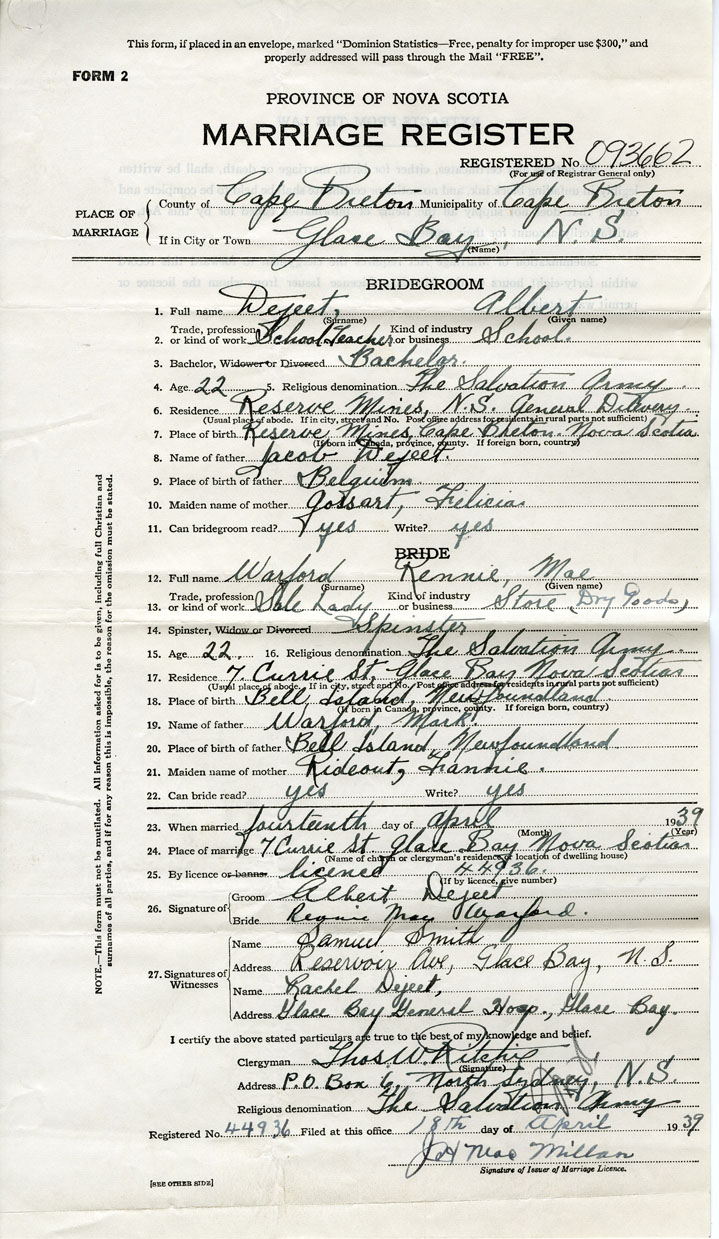 This form, if placed in an envelope, marked "Dominion Statistics—Free, penalty for improper use $300," and
properly addressed will pass through the Mail "FREE".
FORM 2
PROVINCE OF NOVA SCOTIA
MARRIAGE REGISTER
REGISTERED No 093662
(For use of Registrar General only)
PLACE OF MARRIAGE
County of Cape Breton Municipality of Cape Breton
If in City or Town Glace Bay, N.S.
(Name)
BRIDEGROOM
1. Full name Dejeet, Albert
(Surname) (Given name)
Trade, profession Kind of industry
2. or kind of work School Teacher or business School.
3. Bachelor, Widower or Divorced Bachelor.
4. Age 22 5. Religious denomination The Salvation Army.
6. Residence Reserve Mines, N.S. General Delivery
(Usual place of abode. If in city, street and No. Post office address for residents in rural parts not sufficient)
7. Place of birth Reserve Mines, Cape Breton. Nova Scotia
(If born in Canada, province, county. If foreign born, country)
8. Name of father Jacob Dejeet.
9. Place of birth of father Belguim
10. Maiden name of mother Gossart, Felicia
11. Can bridegroom read? yes Write? yes
BRIDE
12. Full name Warford Rennie, Mae
(Surname) (Given name)
Trade, profession Kind of industry
13. or kind of work Sale Lady or business Store (Dry Goods)
14. Spinster, Widow or Divorced Spinster
15. Age 22. 16. Religious denomination The Salvation Army.
17. Residence 7. Currie St, Glace Bay Nova Scotia
(Usual place of abode. If in city, street and No. Post office address for residents in rural parts not sufficient)
18. Place of birth Bell Island, Newfoundland
(If born in Canada, province, county. If foreign born, country)
19. Name of father Warford, Mark.
20. Place of birth of father Bell Island, Newfoundland
21. Maiden name of mother Rideout, Fannie.
22. Can bride read? yes Write? yes
23. When married fourteenth day of april 1939
(Month) (Year)
24. Place of marriage 7 Currie St Glace Bay Nova Scotia
(Name of church or clergyman's residence or location of dwelling house)
25. By licence or banns licence 44936.
(If by licence, give number)
26. Signature of
Groom Albert Dejeet
Bride Rennie May Warford.
27. Signatures of Witnesses
Name Samuel Smith
Address Reservoir Ave, Glace Bay, N.S.
Name Rachel Dejeet,
Address Glace Bay General Hosp., Glace Bay.
I certify the above stated particulars are true to the best of my knowledge and belief.
Clergyman Thos. W. Ritchie
(Signature)
Address P.O. Box 6, North Sydney, N.S.
Religious denomination The Salvation Army
Registered No. 44936 Filed at this office 18th day of April 1939
J H Mac Millan
Signature of Issuer of Marriage Licence.
[SEE OTHER SIDE]
NOTE.—This form must not be mutilated. All information asked for is to be given, including full Christian and
surnames of all parties, and if for any reason this is impossible, the reason for the omission must be stated.